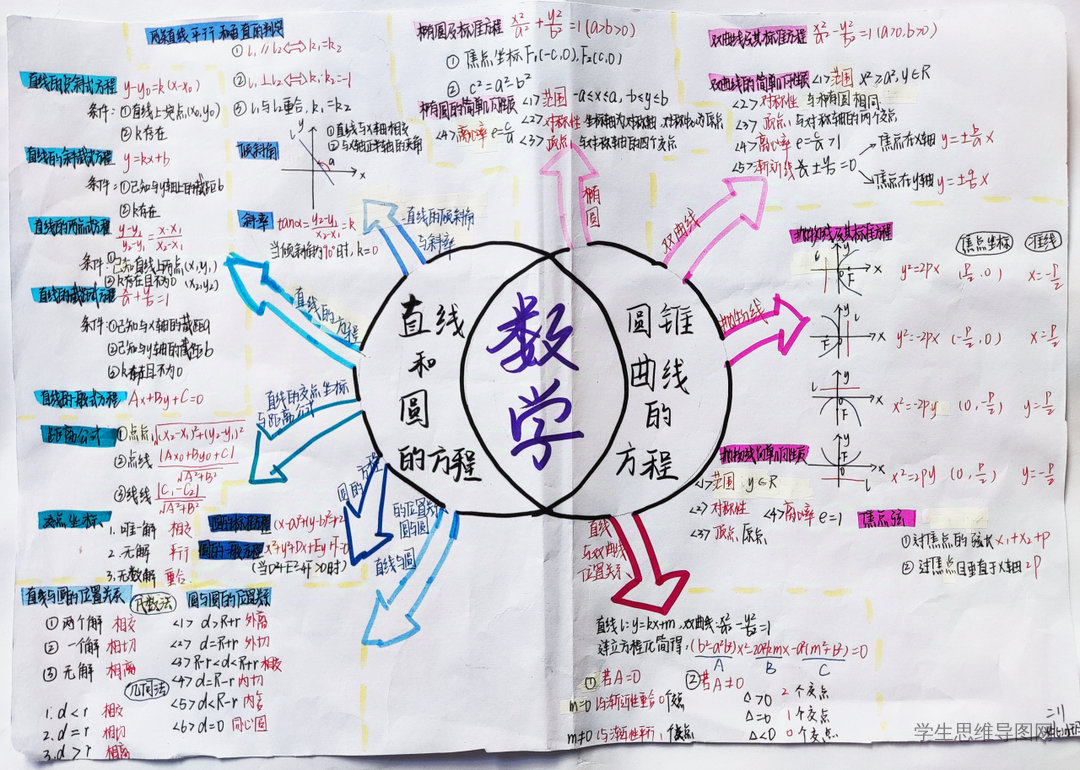 两条直线平行和垂直的判定
① l₁∥l₂⇔k₁=k₂
② l₁⊥l₂⇔k₁·k₂=-1
③ l₁与l₂重合,k₁=k₂
直线的点斜式方程 y-y₀=k(x-x₀)
条件:①直线上一定点(x₀,y₀)
②k存在
直线的斜截式方程 y=kx+b
条件:①已知与y轴上的截距b
②k存在
直线的两点式方程
y-y₂/y₂-y₁=x-x₁/x₂-x₁
条件:①已知直线上两点(x₁,y₁)
②k存在且不为0 (x₂,y₂)
直线的截距式方程 x/a+y/b=1
条件:①已知与x轴的截距a
②已知与y轴的截距b
③k存在且不为0
直线的一般式方程 Ax+By+C=0
距离公式 ①点点√(x₂-x₁)²+(y₂-y₁)²
②点线 |Ax₀+By₀+C|/√A²+B²
③线线 |C₁-C₂|/√A²+B²
交点坐标 1.唯一解 相交
2.无解 平行
3.无数解 重合
倾斜角
①直线与x轴相交
②与x轴正半轴的夹角
y
l
a
x
斜率 tanα=y₂-y₁/x₂-x₁=k
当倾斜角为90°时,k=0
直线的倾斜角
与斜率
直线的方程
直线的交点坐标
与距离公式
圆的方程
圆的标准方程
圆的一般方程 x²+y²+Dx+Ey+F=0
(当D²+E²-4F>0时)
直线与圆
圆与圆
的位置关系
直线与圆的位置关系
代数法
①两个解 相交
②一个解 相切
③无解 相离
几何法
1.d<r 相交
2.d=r 相切
3.d>r 相离
圆与圆的位置关系
<1> d>R+r 外离
<2> d=R+r 外切
<3>R-r<d<R+r 相交
<4>d=R-r 内切
<5>d<R-r 内含
<6>d=0 同心圆
直线
和
圆
的方程
数
学
圆锥
曲线
的
方程
椭圆及标准方程 x²/a²+y²/b²=1(a>b>0)
① 焦点坐标F₁(-c,0),F₂(c,0)
② c²=a²-b²
椭圆的简单几何性质 <1>范围 -a≤x≤a,-b≤y≤b
<2>对称性 坐标轴为对称轴,对称中心为原点
<3>顶点 与对称轴的四个交点
<4>离心率 e=c/a
椭圆
双曲线及其标准方程 x²/a²-y²/b²=1(a>0,b>0)
双曲线的简单几何性质 <1>范围 x²≥a²,y∈R
<2>对称性 与椭圆相同
<3>顶点 与对称轴的两个交点
<4>离心率 e=c/a>1
<5>渐近线 x/a±y/b=0
焦点在x轴 y=±b/a x
焦点在y轴 y=±a/b x
双曲线
抛物线
抛物线及其标准方程
焦点坐标 准线
y²=2px (p/2,0) x=-p/2
y²=-2px (-p/2,0) x=p/2
x²=-2py (0,-p/2) y=p/2
x²=2py (0,p/2) y=-p/2
抛物线的简单几何性质
<1>范围 y∈R
<2>对称性 <4>离心率 e=1
<3>顶点 原点
焦点弦
①过焦点的弦长x₁+x₂+p
②过焦点且垂直于x轴 2p
直线
与双曲线
位置关系
直线l:y=kx+m,双曲线:x²/a²-y²/b²=1
建立方程化简得,(b²-a²k²)x²-2a²kmx-a²(m²+b²)=0
A B C
①若A=0
m=0 l与渐近线重合 0个交点
m≠0 l与渐近线平行,1个交点
②若A≠0
△>0 2个交点
△=0 1个交点
△<0 0个交点
学生思维导图网